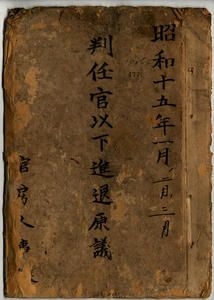 昭和十五年一月二月三月
判任官以下進退原議
官房人